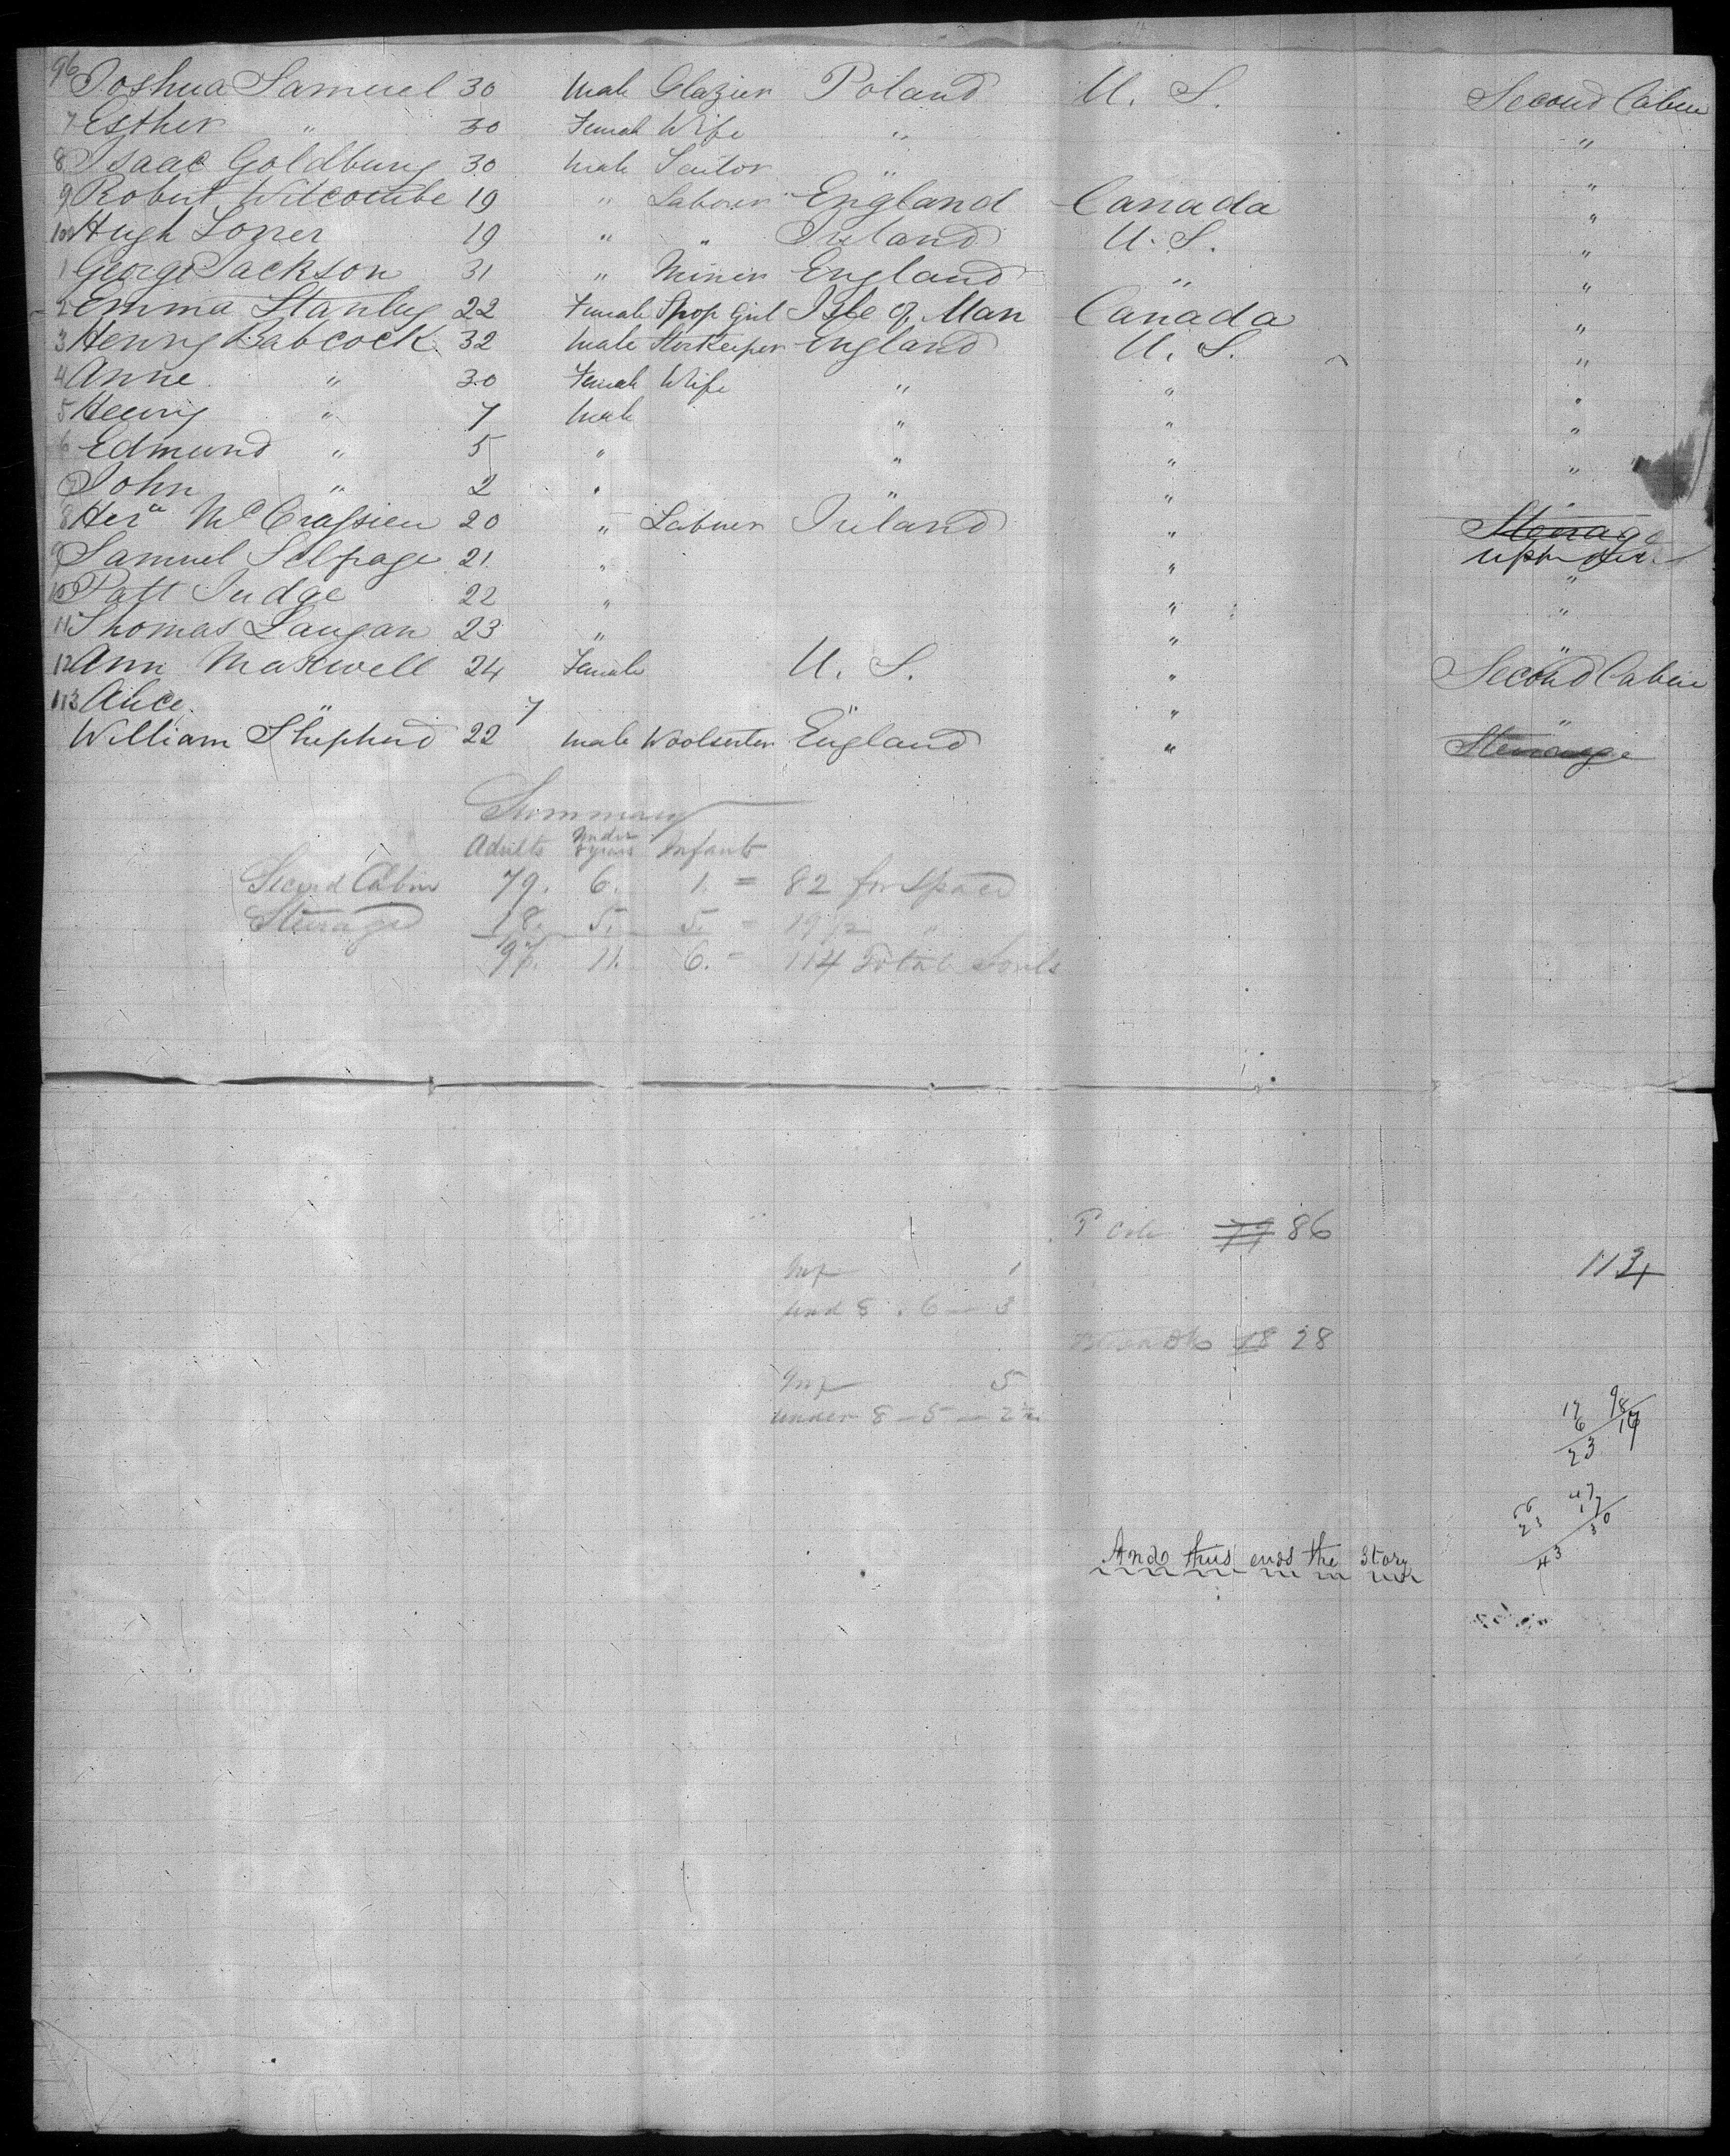 96 Joshua Samuel 30 Male Glazier Poland U. S. Second Cabin
7 Esther " 30 Female Wife " "
8 Isaac Goldburg 30 Male Tailor " "
9 Robert Witcombe 19 " Laborer England Canada "
100 Hugh 19 " " Ireland U. S. "
1 George Jackson 31 " Miner England " "
2 Emma Stanley 22 Female Shop Girl Isle of Man Canada "
3 Henry Babcock 32 Male Storekeeper England U. S. "
4 Anne " 30 Female Wife " " "
5 Henry " 7 Male " " "
6 Edmund " 5 " " " "
7 John " 2 " " " "
8 20 " Laborer Ireland " Steerage
9 Samuel 21 " " upper
10 Patt Judge 22 " " "
11 Thomas Langan 23 " " "
12 Ann Maxwell 24 Female U. S. " Second Cabin
113 Alice " 7 " " "
William Shepherd 22 Male Woolsorter England " Steerage
Summary
Adults Under 8 years Infants
Second Cabin 79. 6. 1. = 82 for Space
Steerage 18. 5. 5. = 19 1/2 "
97. 11. 6. = 114 Total Souls
86
113
Inf 1
und 8 . 6 — 3
18 28
Inf 5
under 8 — 5 — 2 1/2
17 98
6 17
23
47
17
23 30
43
And thus ends the story